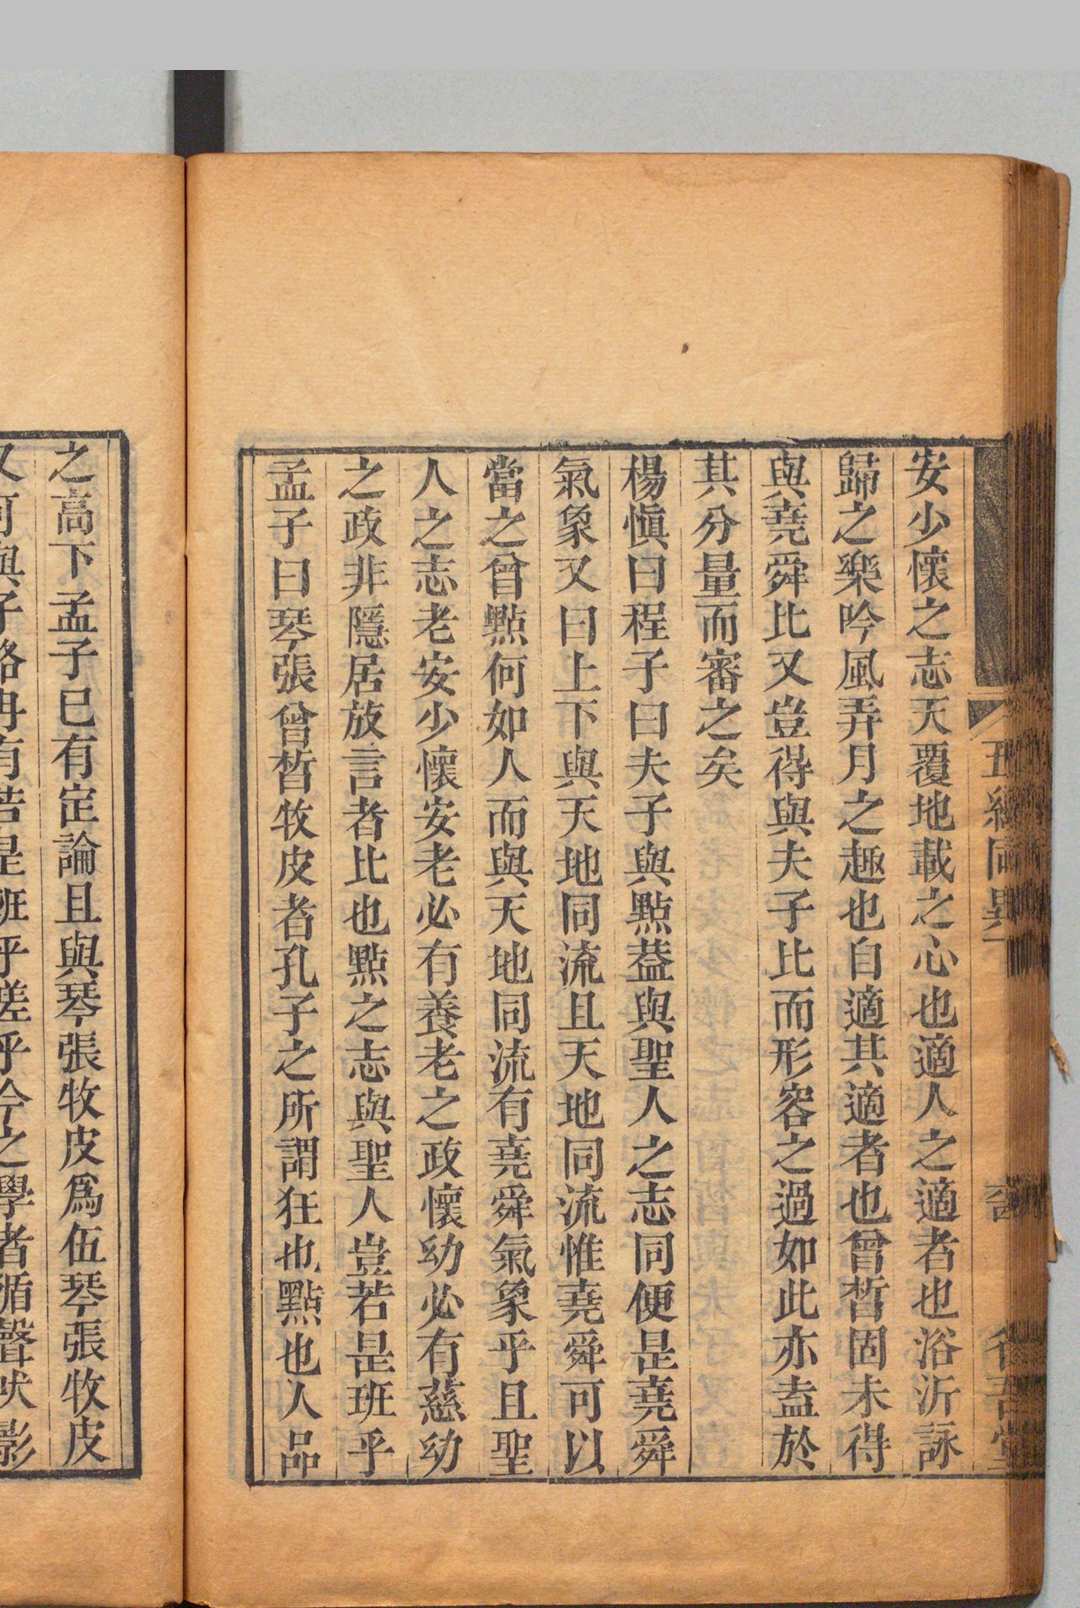 安少懷之志天覆地載之心也適人之適者也浴沂詠
歸之樂吟風弄月之趣也自適其適者也曾晳固未得
與堯舜比又豈得與夫子比而形容之過如此亦盍於
其分量而審之矣
楊愼曰程子曰夫子與點葢與聖人之志同便是堯舜
氣象又曰上下與天地同流且天地同流惟堯舜可以
當之曾點何如人而與天地同流有堯舜氣象乎且聖
人之志老安少懷安老必有養老之政懷幼必有慈幼
之政非隱居放言者比也點之志與聖人豈若是班乎
孟子曰琴張曾晳牧皮者孔子之所謂狂也點也人品
之高下孟子已有定論且與琴張牧皮爲伍琴張牧皮
又何與子路冉有若是班乎嗟乎今之學者循聲吠影